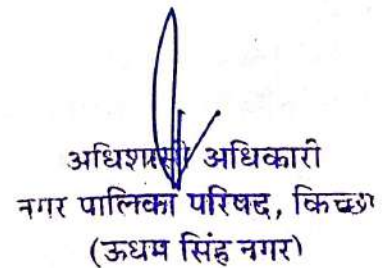 अधिशासी अधिकारी
नगर पालिका परिषद, किच्छा
(ऊधम सिंह नगर)